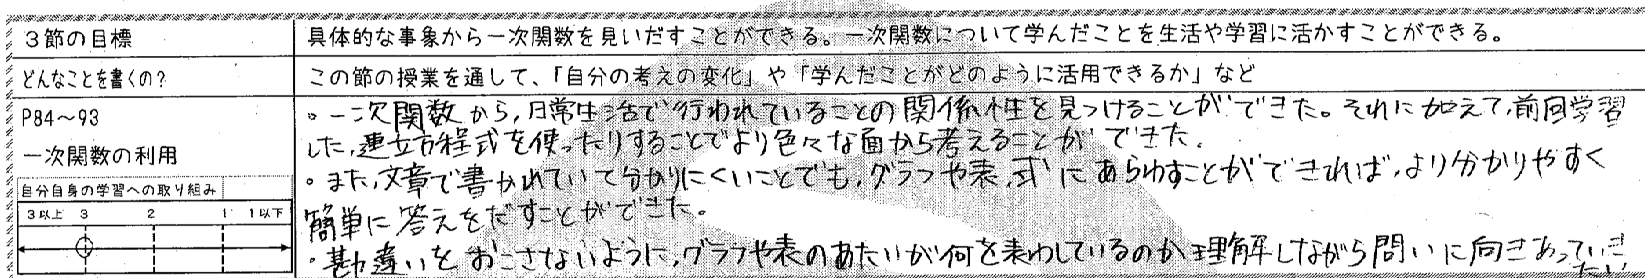 3節の目標
具体的な事象から一次関数を見いだすことができる。一次関数について学んだことを生活や学習に活かすことができる。
どんなことを書くの？
この節の授業を通して、「自分の考えの変化」や「学んだことがどのように活用できるか」など
P84～93
一次関数の利用
自分自身の学習への取り組み
3以上 3 2 1 1以下
。一次関数から，日常生活で行われていることの関係性を見つけることができた。それに加えて，前回学習
した，連立方程式を使ったりすることでより色々な面から考えることができた．
・また，文章で書かれていて分かりにくいことでも，グラフや表，式にあらわすことができれば，より分かりやすく
簡単に答えをだすことができた。
・勘違いをおこさないように，グラフや表のあたいが何を表わしているのか理解しながら問いに向きあっていき
たい